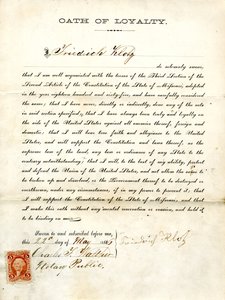 OATH OF LOYALTY.
I, Fridrich Klotz
do solemnly swear,
that I am well acquainted with the terms of the Third Section of the
Second Article of the Constitution of the State of Missouri, adopted
in the year eighteen hundred and sixty-five, and have carefully considered
the same; that I have never, directly or indirectly, done any of the acts
in said section specified; that I have always been truly and loyally on
the side of the United States against all enemies thereof, foreign and
domestic; that I will bear true faith and allegiance to the United
States, and will support the Constitution and laws thereof, as the
supreme law of the land, any law or ordinance of any State to the
contrary notwithstanding; that I will, to the best of my ability, protect
and defend the Union of the United States, and not allow the same to
be broken up and dissolved, or the Government thereof to be destroyed or
overthrown, under any circumstances, if in my power to prevent it; that
I will support the Constitution of the State of Missouri; and that I
make this oath without any mental reservation or evasion, and hold it
to be binding on me.
Sworn to and subscribed before me,
this 22d day of May 186
Notary Public